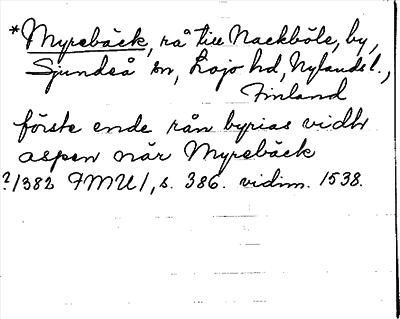 *Myrebäck, rå till Nackböle, by,
Sjundeå sn, Lojo hd, Nylands l.,
Finland
förste ende rån byrias vidh
aspen när Myrebäck
?1382 FMU 1, s. 386. vidim. 1538.